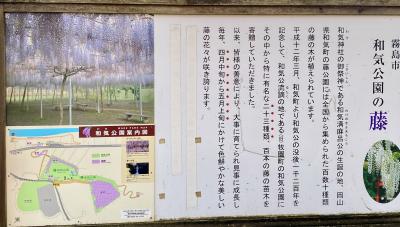 霧島市
和気公園の藤
和気神社の御祭神である和気清麻呂公の生誕の地、岡山
県和気町の藤公園には全国から集められた百数十種類
の藤の木が植えられています。
平成十二年三月、和気町より和気公の没後一千二百年を
記念して、和気公流謫の地である牧園町の和気公園に
その中から特に有名な二十三種類、百本の藤の苗木を
寄贈していただきました。
以来、皆様の善意により、大事に育てられ見事に成長し
毎年、四月中旬から五月上旬にかけて色鮮やかな美しい
藤の花々が咲き誇ります。
和気公園案内図